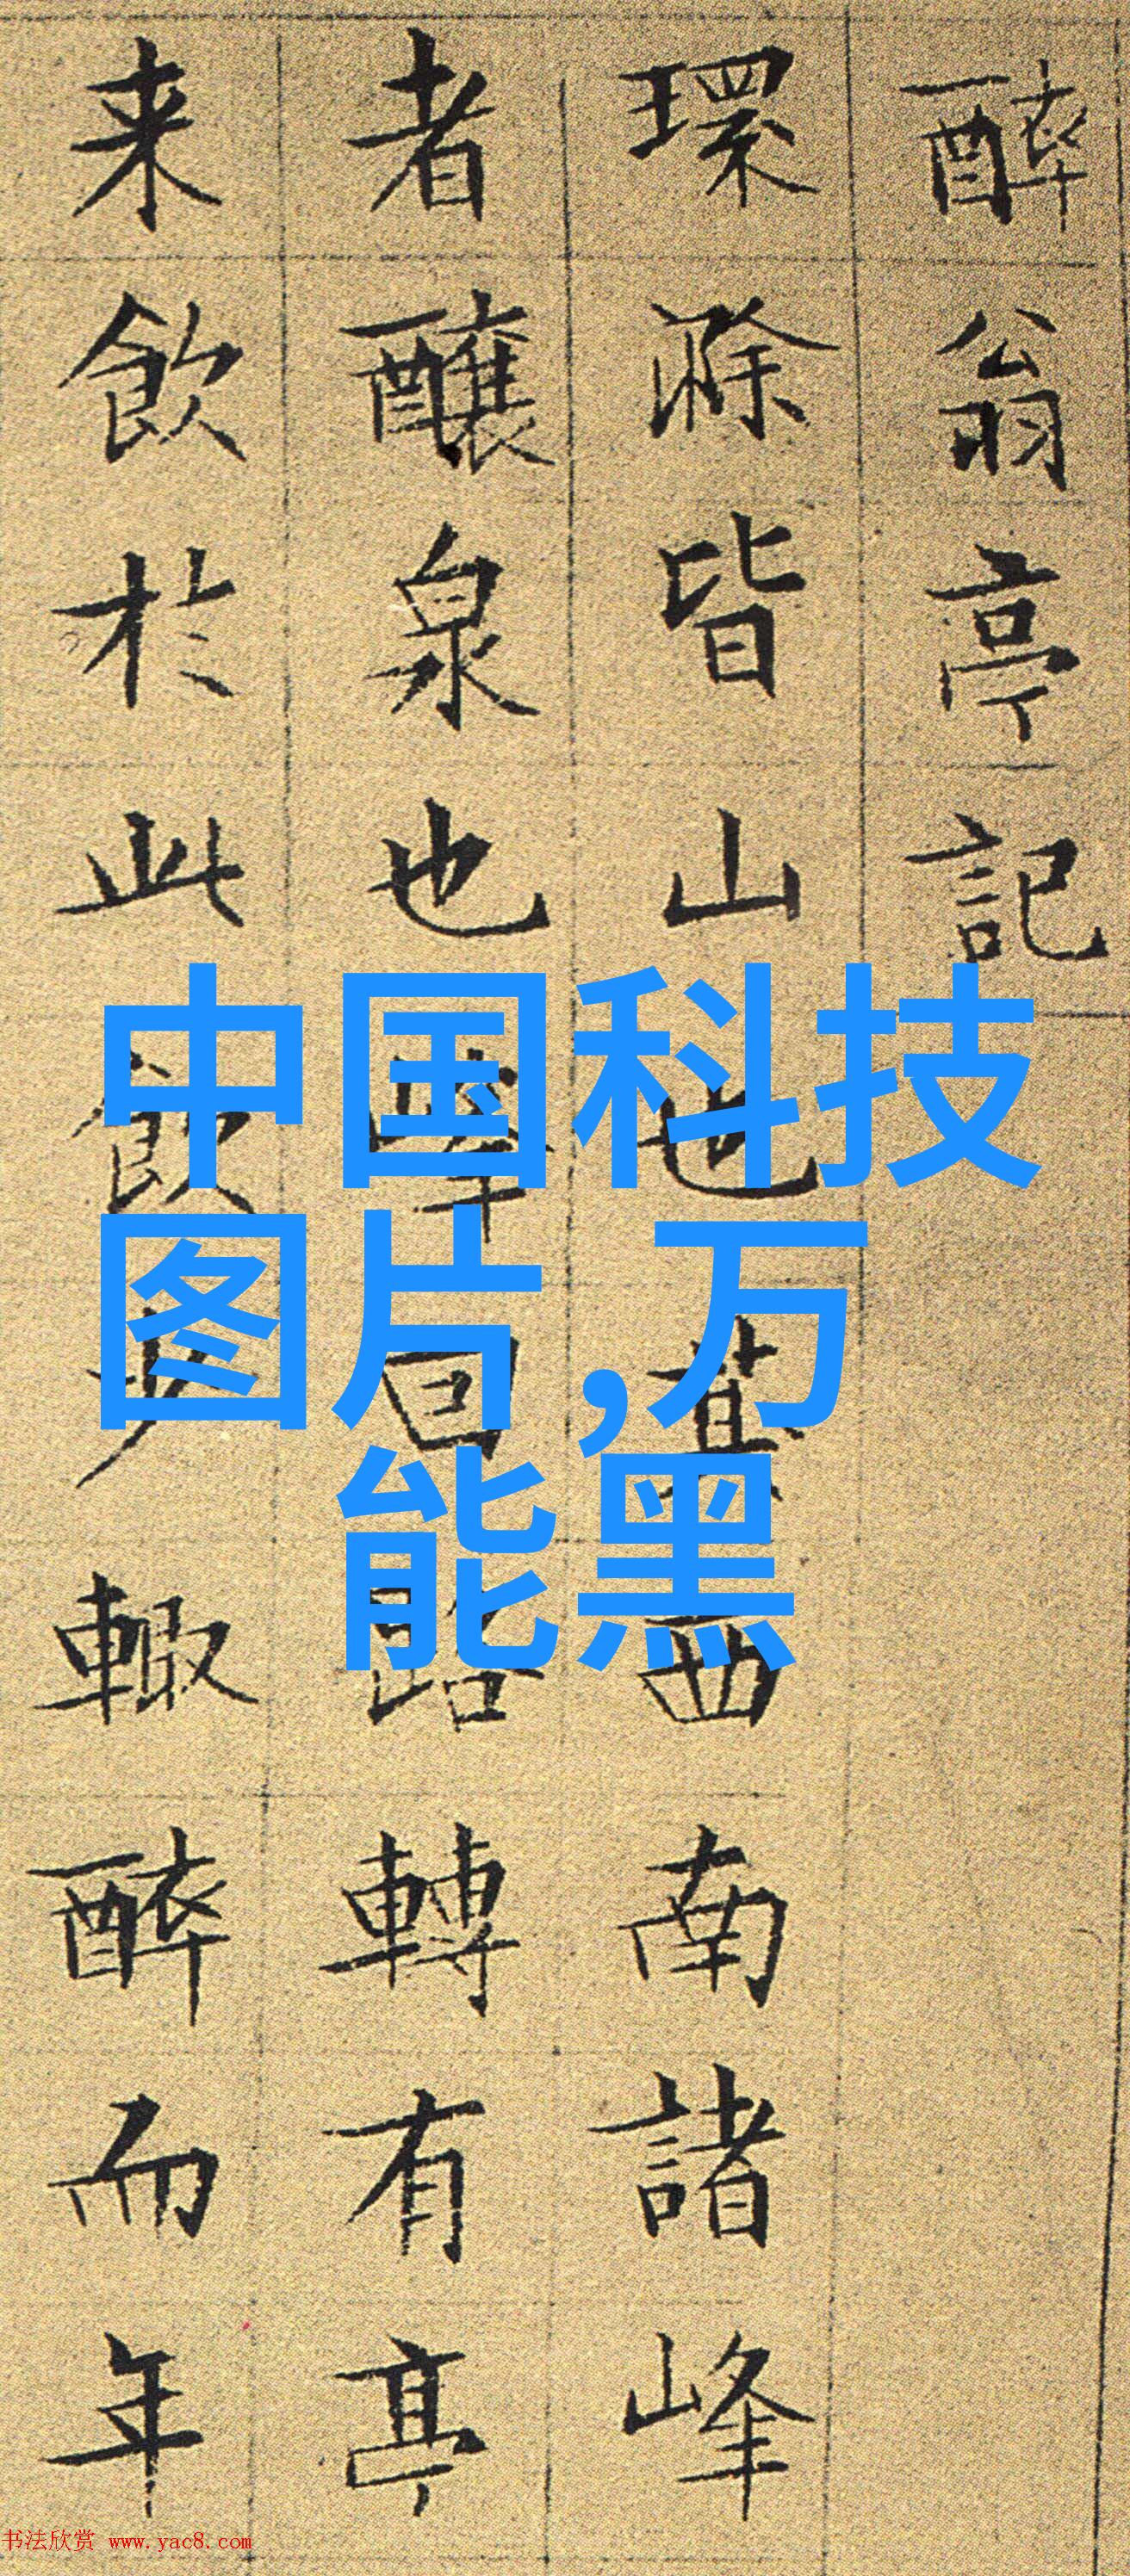 醉翁亭記
環滁皆山也其西南諸峰
者釀泉也峰回路轉有亭
来飲於此飲少輙醉而年
中国科技
图片,万
能黑
书法欣赏 www.yac8.com